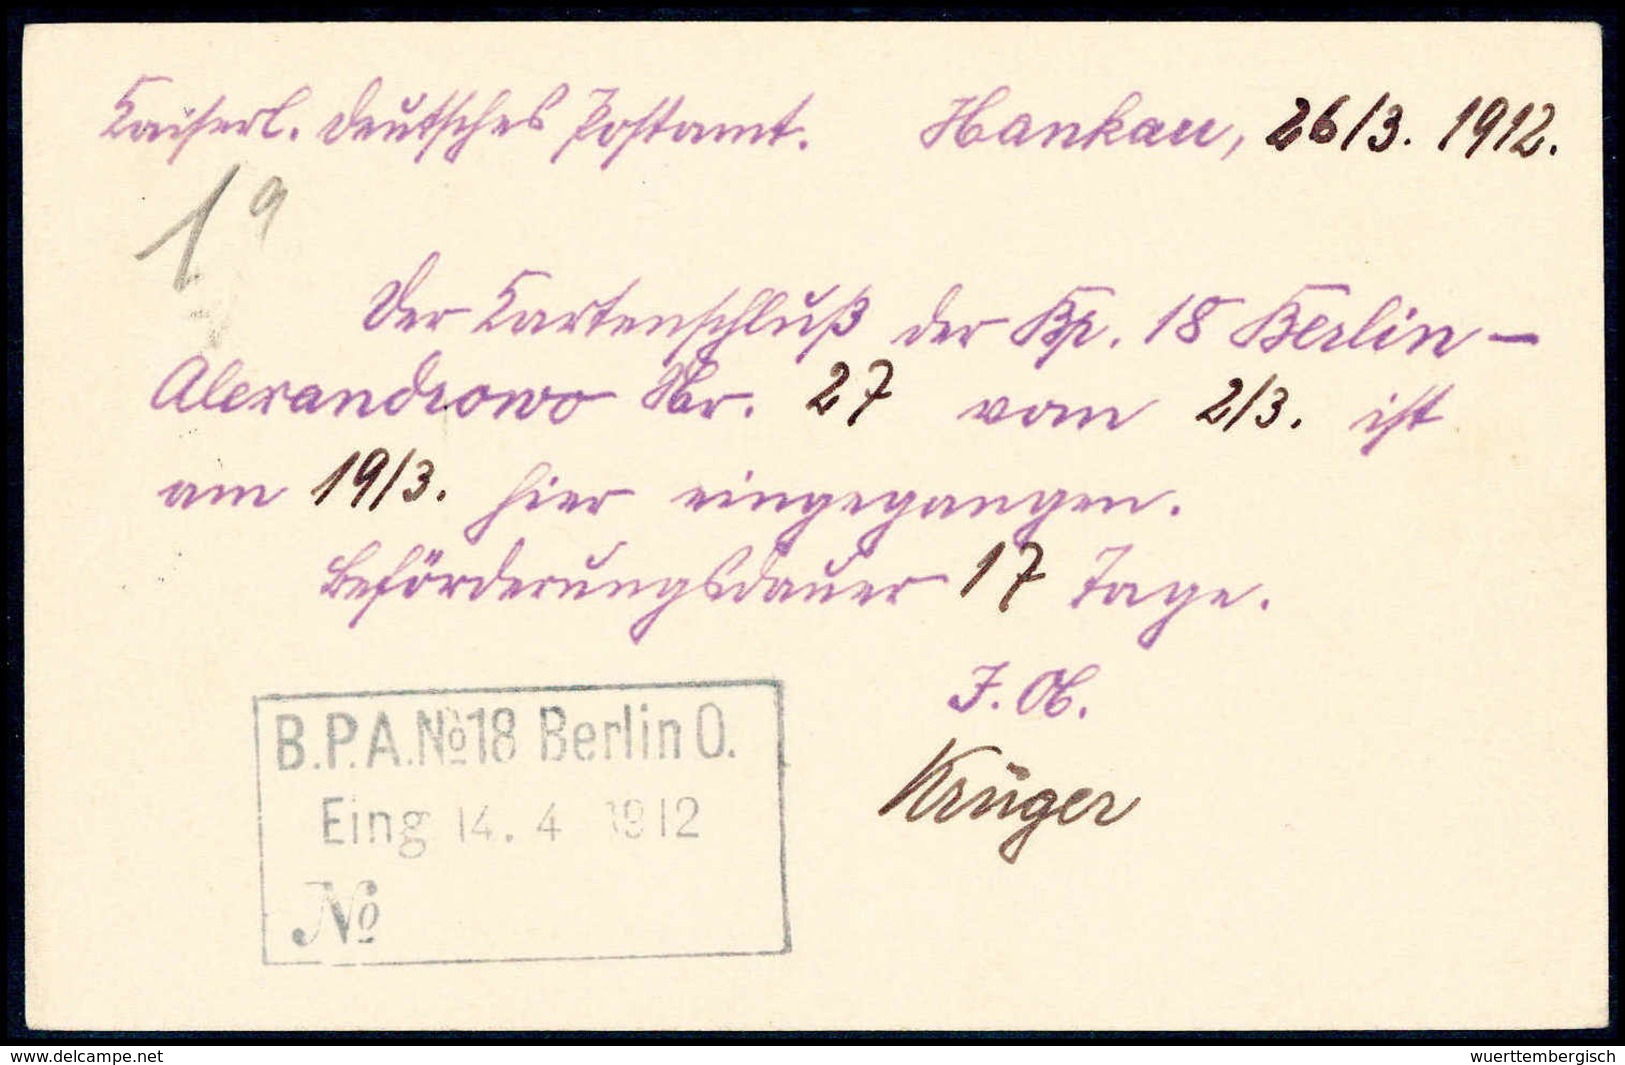 Kaiserl. Deutsches Postamt. Hankau, 26/3. 1912.
1a
Der Kartenschluß der Bp. 18 Berlin –
Alexandrowo Nr. 27 vom 2/3. ist
am 19/3. hier eingegangen.
Beförderungsdauer 17 Tage.
Krüger
B.P.A. No 18 Berlin O.
Eing 14. 4 1912
No
delcampe.net
wuerttembergisch